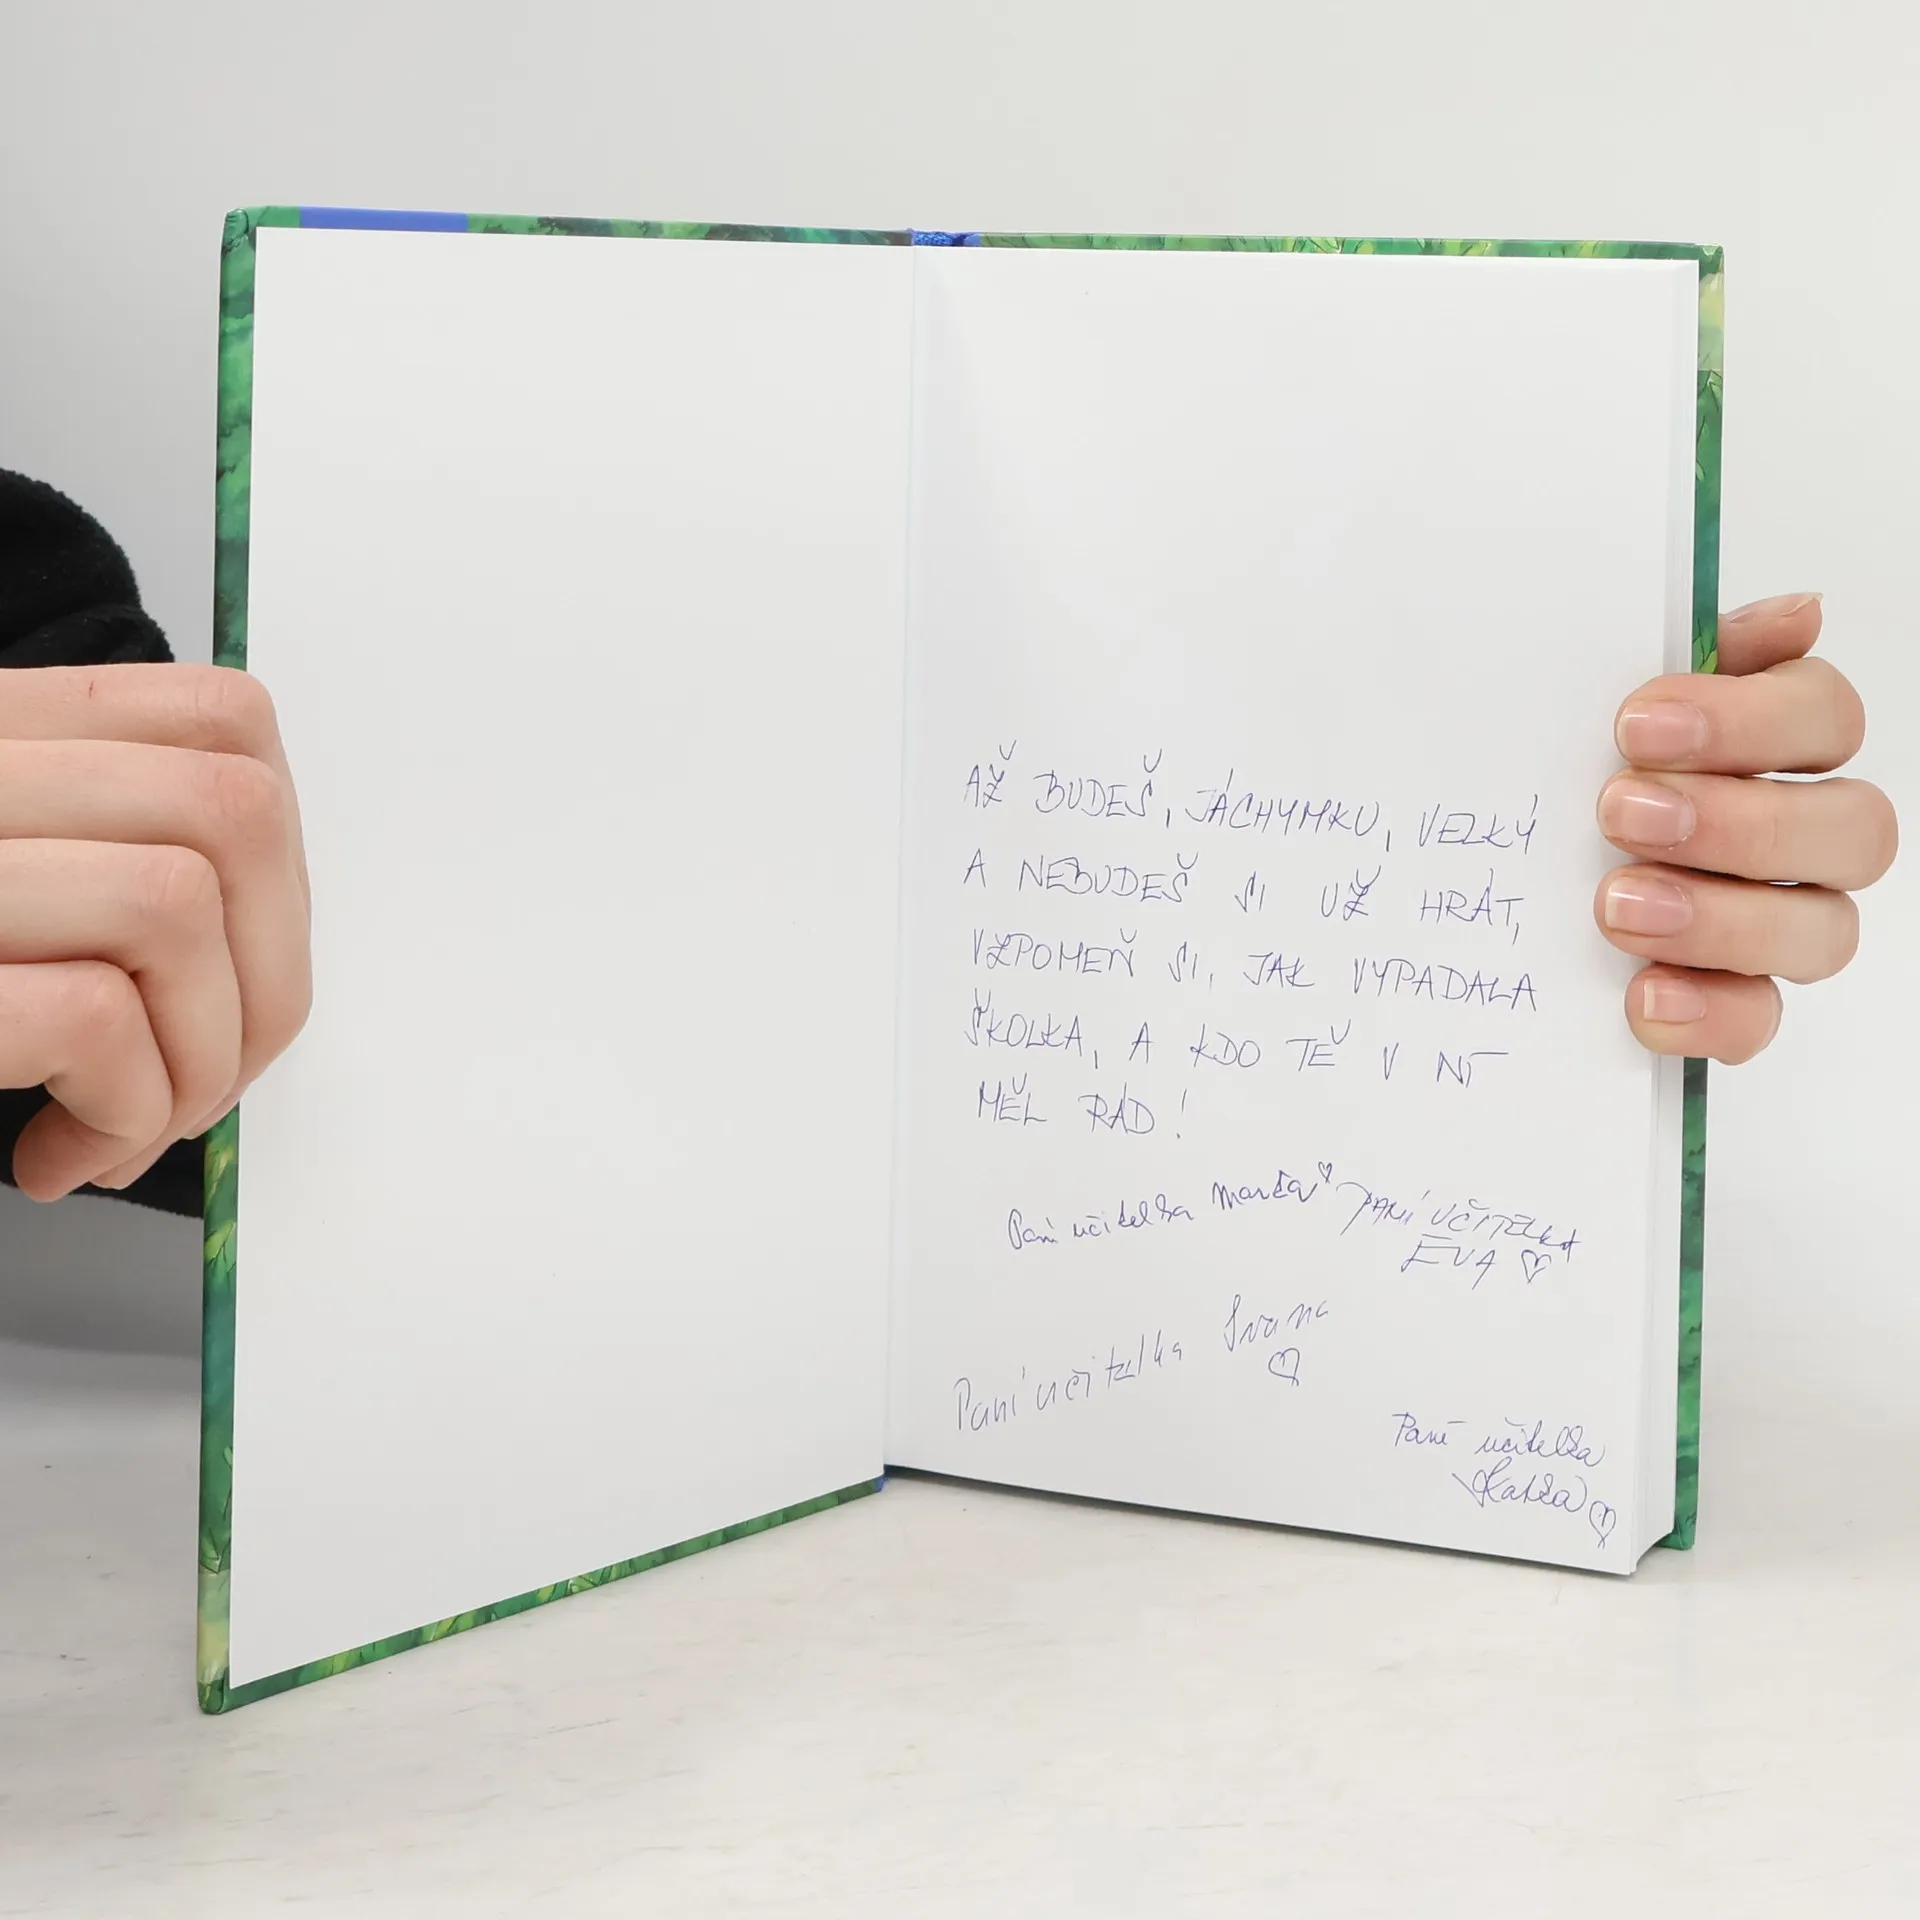 AŽ BUDEŠ, JÁCHYMKU, VELKÝ
A NEBUDEŠ SI UŽ HRÁT,
VZPOMEŇ SI, JAK VYPADALA
ŠKOLKA, A KDO TĚ V NÍ
MĚL RÁD!
Paní učitelka Marča PANÍ UČITELKA
EVA
Paní učitelka Ivana
Paní učitelka
Katka